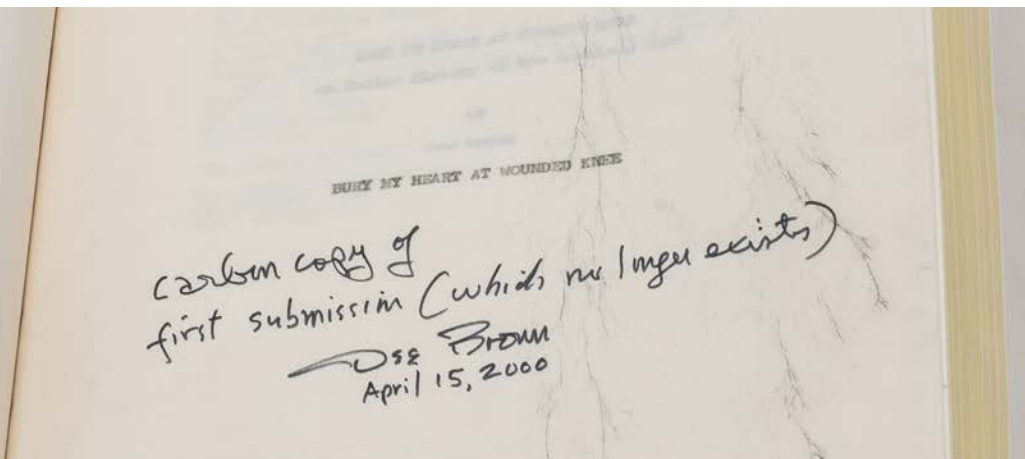 BURY MY HEART AT WOUNDED KNEE
carbon copy of
first submission (which no longer exists)
Dee Brown
April 15, 2000